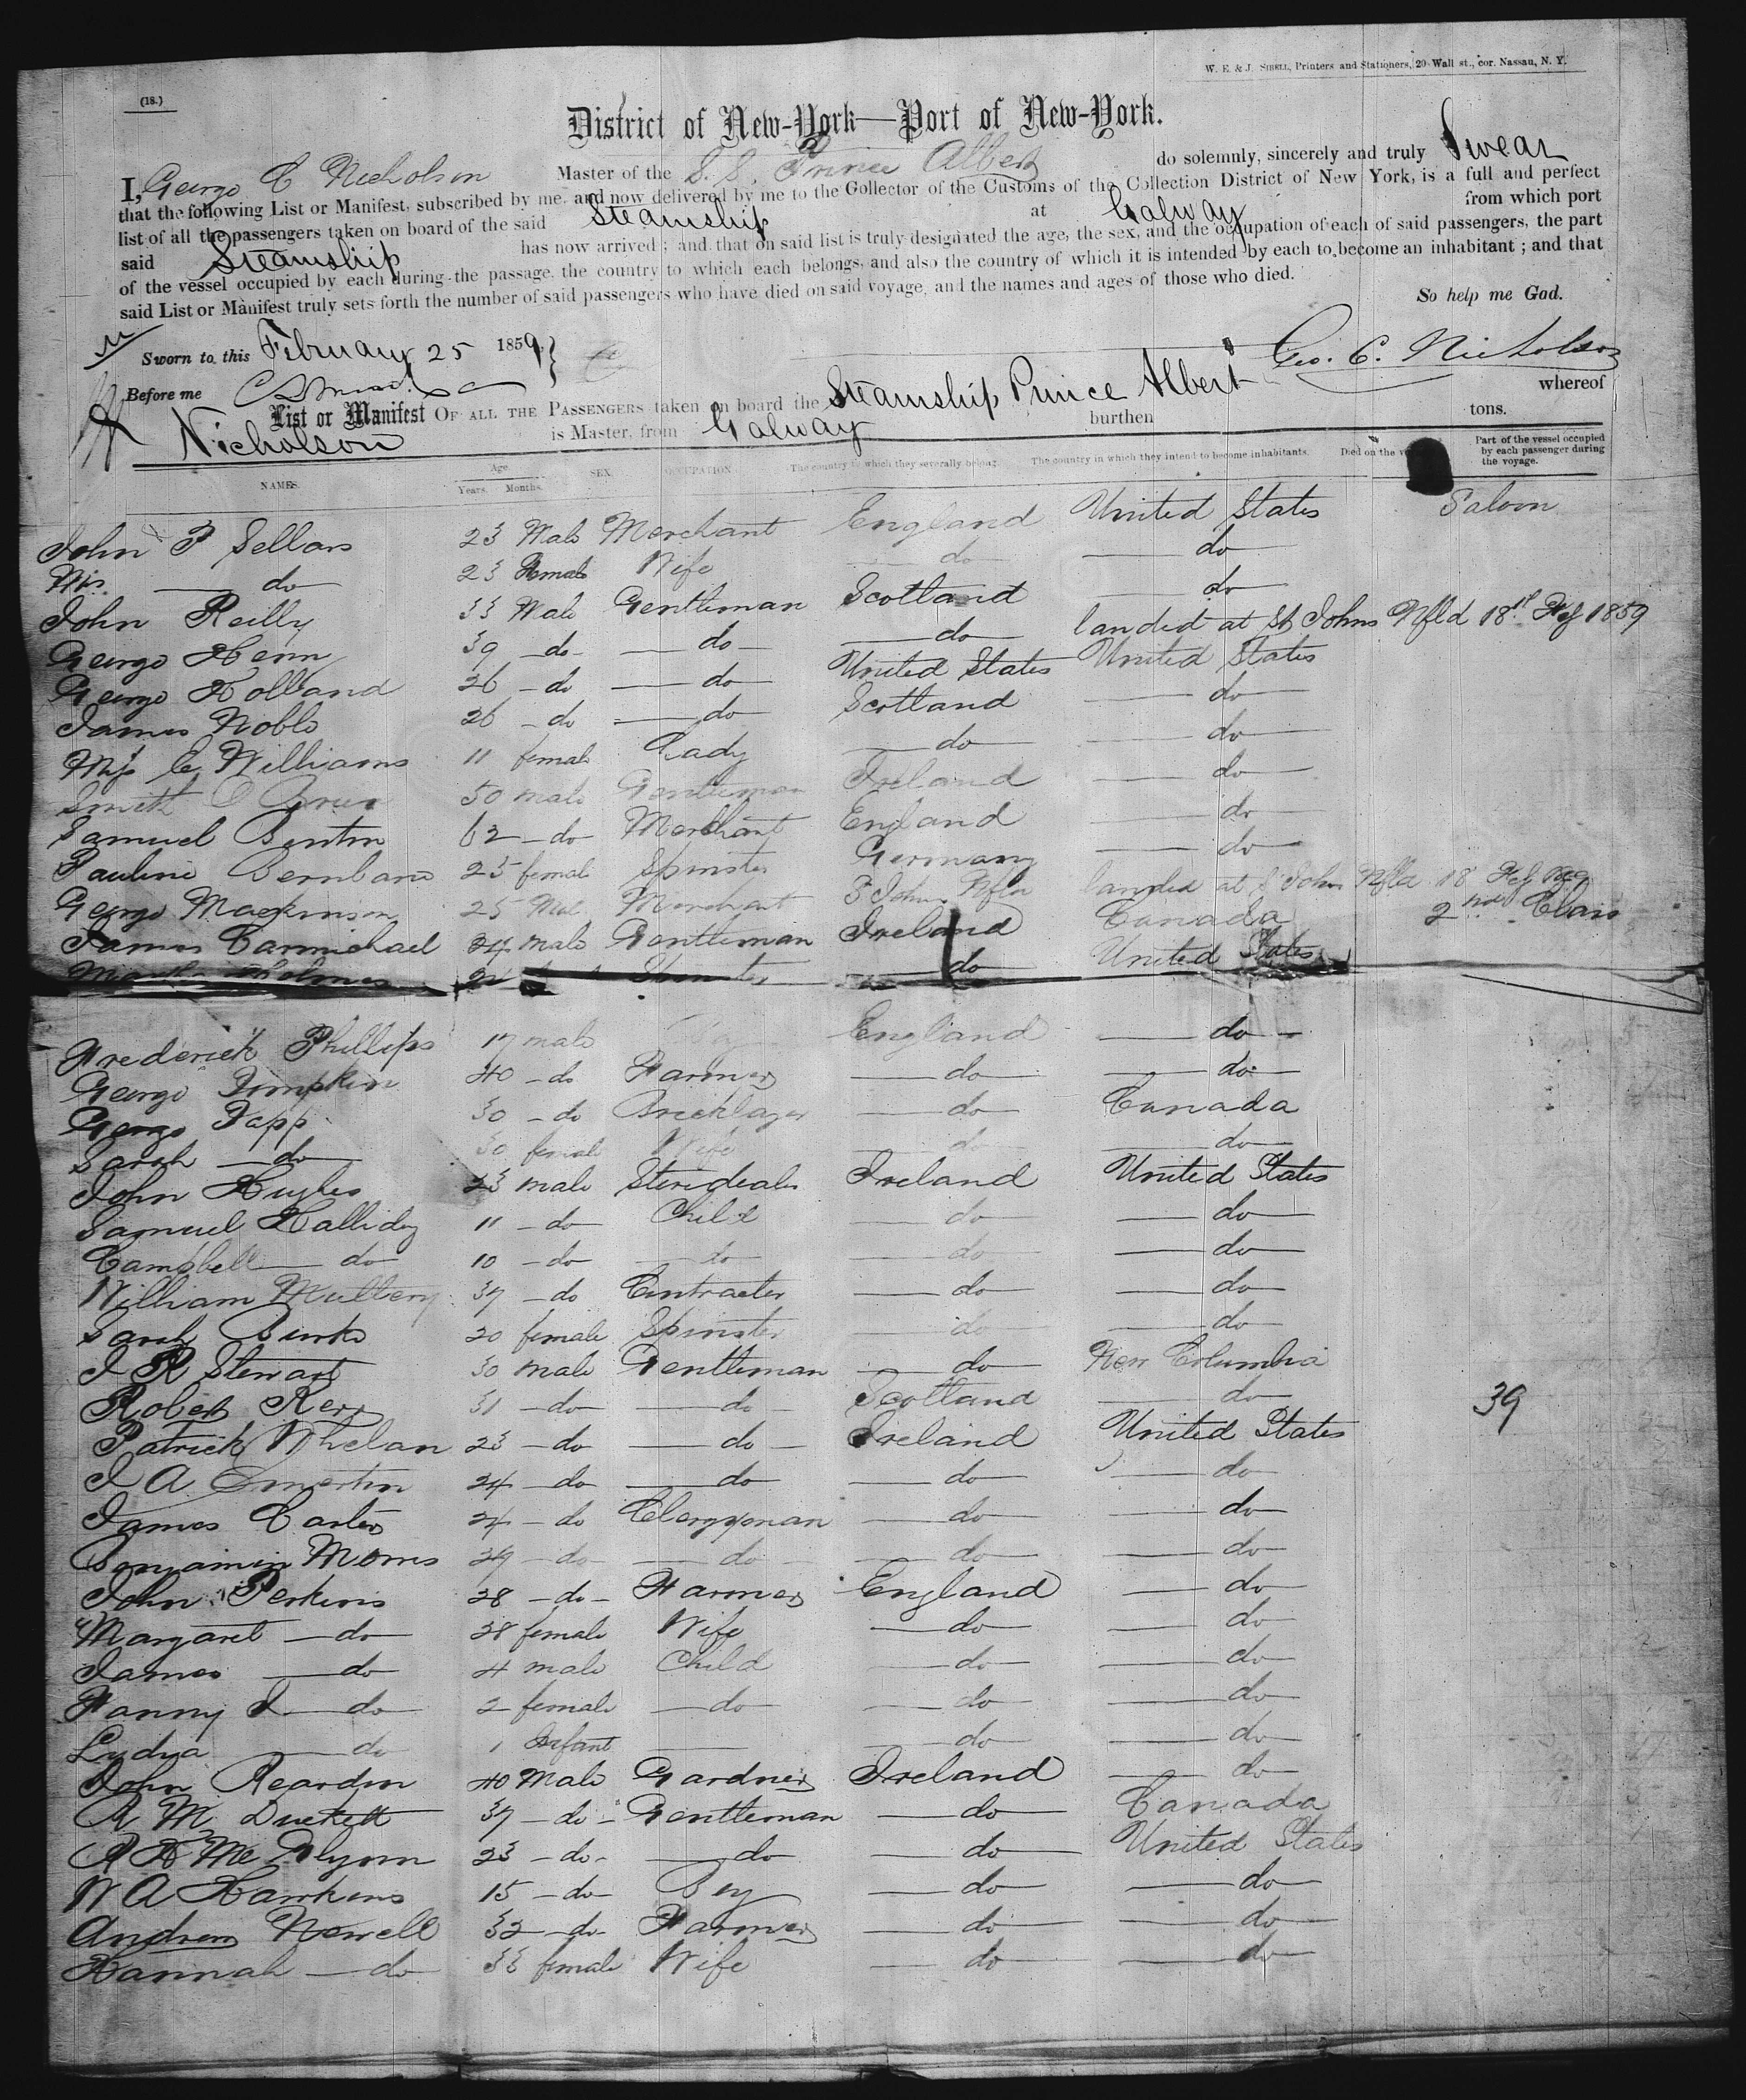 W. E. & J. SIBELL, Printers and Stationers, 20 Wall st., cor. Nassau, N. Y.
(18.)
District of New-York—Port of New-York.
I, George C Nicholson Master of the S. S. Prince Albert do solemnly, sincerely and truly Swear
that the following List or Manifest, subscribed by me, and now delivered by me to the Collector of the Customs of the Collection District of New York, is a full and perfect
list of all the passengers taken on board of the said Steamship at Galway from which port
said Steamship has now arrived; and that on said list is truly designated the age, the sex, and the occupation of each of said passengers, the part
of the vessel occupied by each during the passage, the country to which each belongs, and also the country of which it is intended by each to become an inhabitant; and that
said List or Manifest truly sets forth the number of said passengers who have died on said voyage, and the names and ages of those who died.
So help me God.
Sworn to this February 25 1859 Geo. C. Nicholson
Before me
List or Manifest OF ALL THE PASSENGERS taken on board the Steamship Prince Albert whereof
Nicholson is Master, from Galway burthen tons.
NAMES. Age. Years. Months. SEX. OCCUPATION. The country to which they severally belong. The country in which they intend to become inhabitants. Died on the Part of the vessel occupied by each passenger during the voyage.
John P Sellars 23 Male Merchant England United States Saloon
Mrs — do 23 Female Wife do — do
John Reilly 33 Male Gentleman Scotland — do
George Henn 39 — do — do — do landed at St Johns Nfld 18th Feb 1859
George Holland 26 — do — do United States United States
James Noble 26 — do — do Scotland — do
Miss C Williams 11 female Lady — do — do
Smith O Brien 50 male Gentleman Ireland — do
Samuel Benton 62 — do Merchant England — do
Pauline 25 female Spinster Germany — do
George Mackinson 25 Male Merchant St Johns Nfld landed at St Johns Nfld 18 Feb
James Carmichael 24 male Gentleman Ireland Canada 2nd Class
Holmes 24 Spinster — do United States
Frederick Phillips 17 male England — do
George Timpkin 40 — do Farmer — do — do
George Tapp 30 — do Bricklayer — do Canada
Sarah — do 30 female Wife — do — do
John Hughes 23 male Ireland United States
Samuel Halliday 11 — do Child — do — do
Campbell — do 10 — do — do — do — do
William Mullery 37 — do Contractor — do — do
Sarah Burke 20 female Spinster — do — do
J R Stewart 30 male Gentleman — do New Columbia
Robert Kerr 31 — do — do Scotland — do 39
Patrick Whelan 23 — do — do Ireland United States
J A 24 — do — do — do — do
James Carter 24 — do Clergyman — do — do
Benjamin Morris 29 — do — do — do — do
John Perkins 28 — do Farmer England — do
Margaret — do 28 female Wife — do — do
James — do 4 male Child — do — do
Fanny J — do 2 female — do — do — do
Lydia — do 1 Infant — — do — do
John Reardon 40 Male Gardner Ireland — do
R M Duckett 37 — do Gentleman — do Canada
R H Mc Glynn 23 — do — do — do United States
W A Hawkins 15 — do Boy — do — do
Andrew Newell 32 — do Farmer — do — do
Hannah — do 33 female Wife — do — do